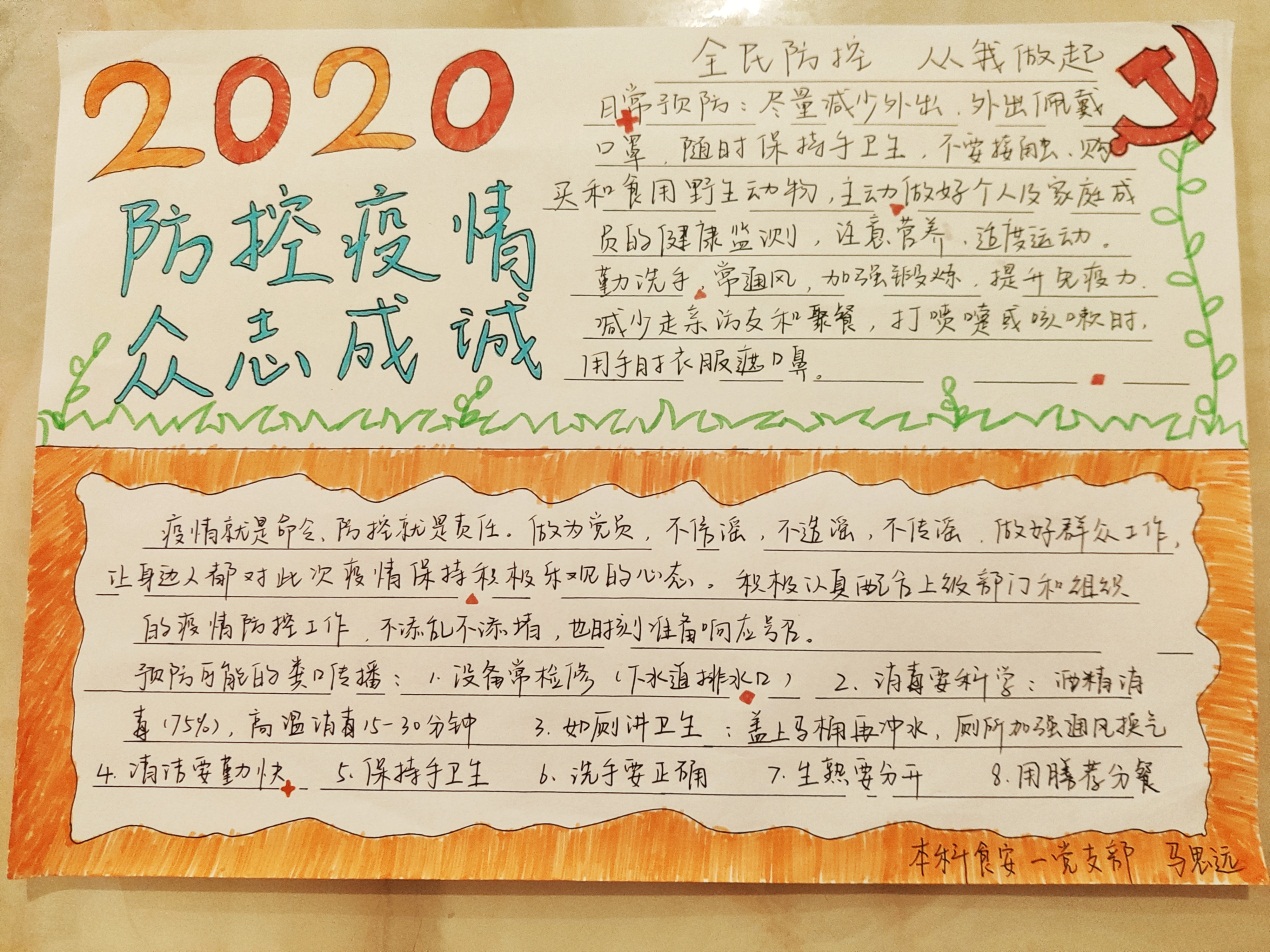 2020
防控疫情
众志成诚
全民防控 从我做起
日常预防：尽量减少外出，外出佩戴
口罩，随时保持手卫生，不要接触、购
买和食用野生动物，主动做好个人及家庭成
员的健康监测，注意营养，适度运动。
勤洗手，常通风，加强锻炼，提升免疫力，
减少走亲访友和聚餐，打喷嚏或咳嗽时，
用手肘衣服遮口鼻。
疫情就是命令、防控就是责任。做为党员，不信谣，不造谣，不传谣，做好群众工作，
让身边人都对此次疫情保持积极乐观的心态。积极认真配合上级部门和组织
的疫情防控工作，不添乱不添堵，也时刻准备响应号召。
预防可能的粪口传播：1.设备常检修（下水道排水口） 2.消毒要科学：酒精消
毒（75%），高温消毒15-30分钟 3.如厕讲卫生：盖上马桶再冲水，厕所加强通风换气
4.清洁要勤快 5.保持手卫生 6.洗手要正确 7.生熟要分开 8.用膳荐分餐
本科食安一党支部 马思远